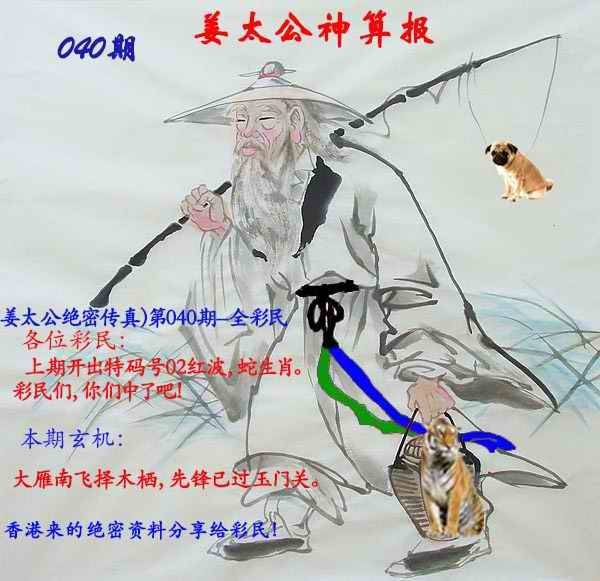 姜太公神算报
040期
姜太公绝密传真)第040期--全彩民
各位彩民:
上期开出特码号02红波,蛇生肖。
彩民们,你们中了吧!
本期玄机:
大雁南飞择木栖,先锋已过玉门关。
香港来的绝密资料分享给彩民!